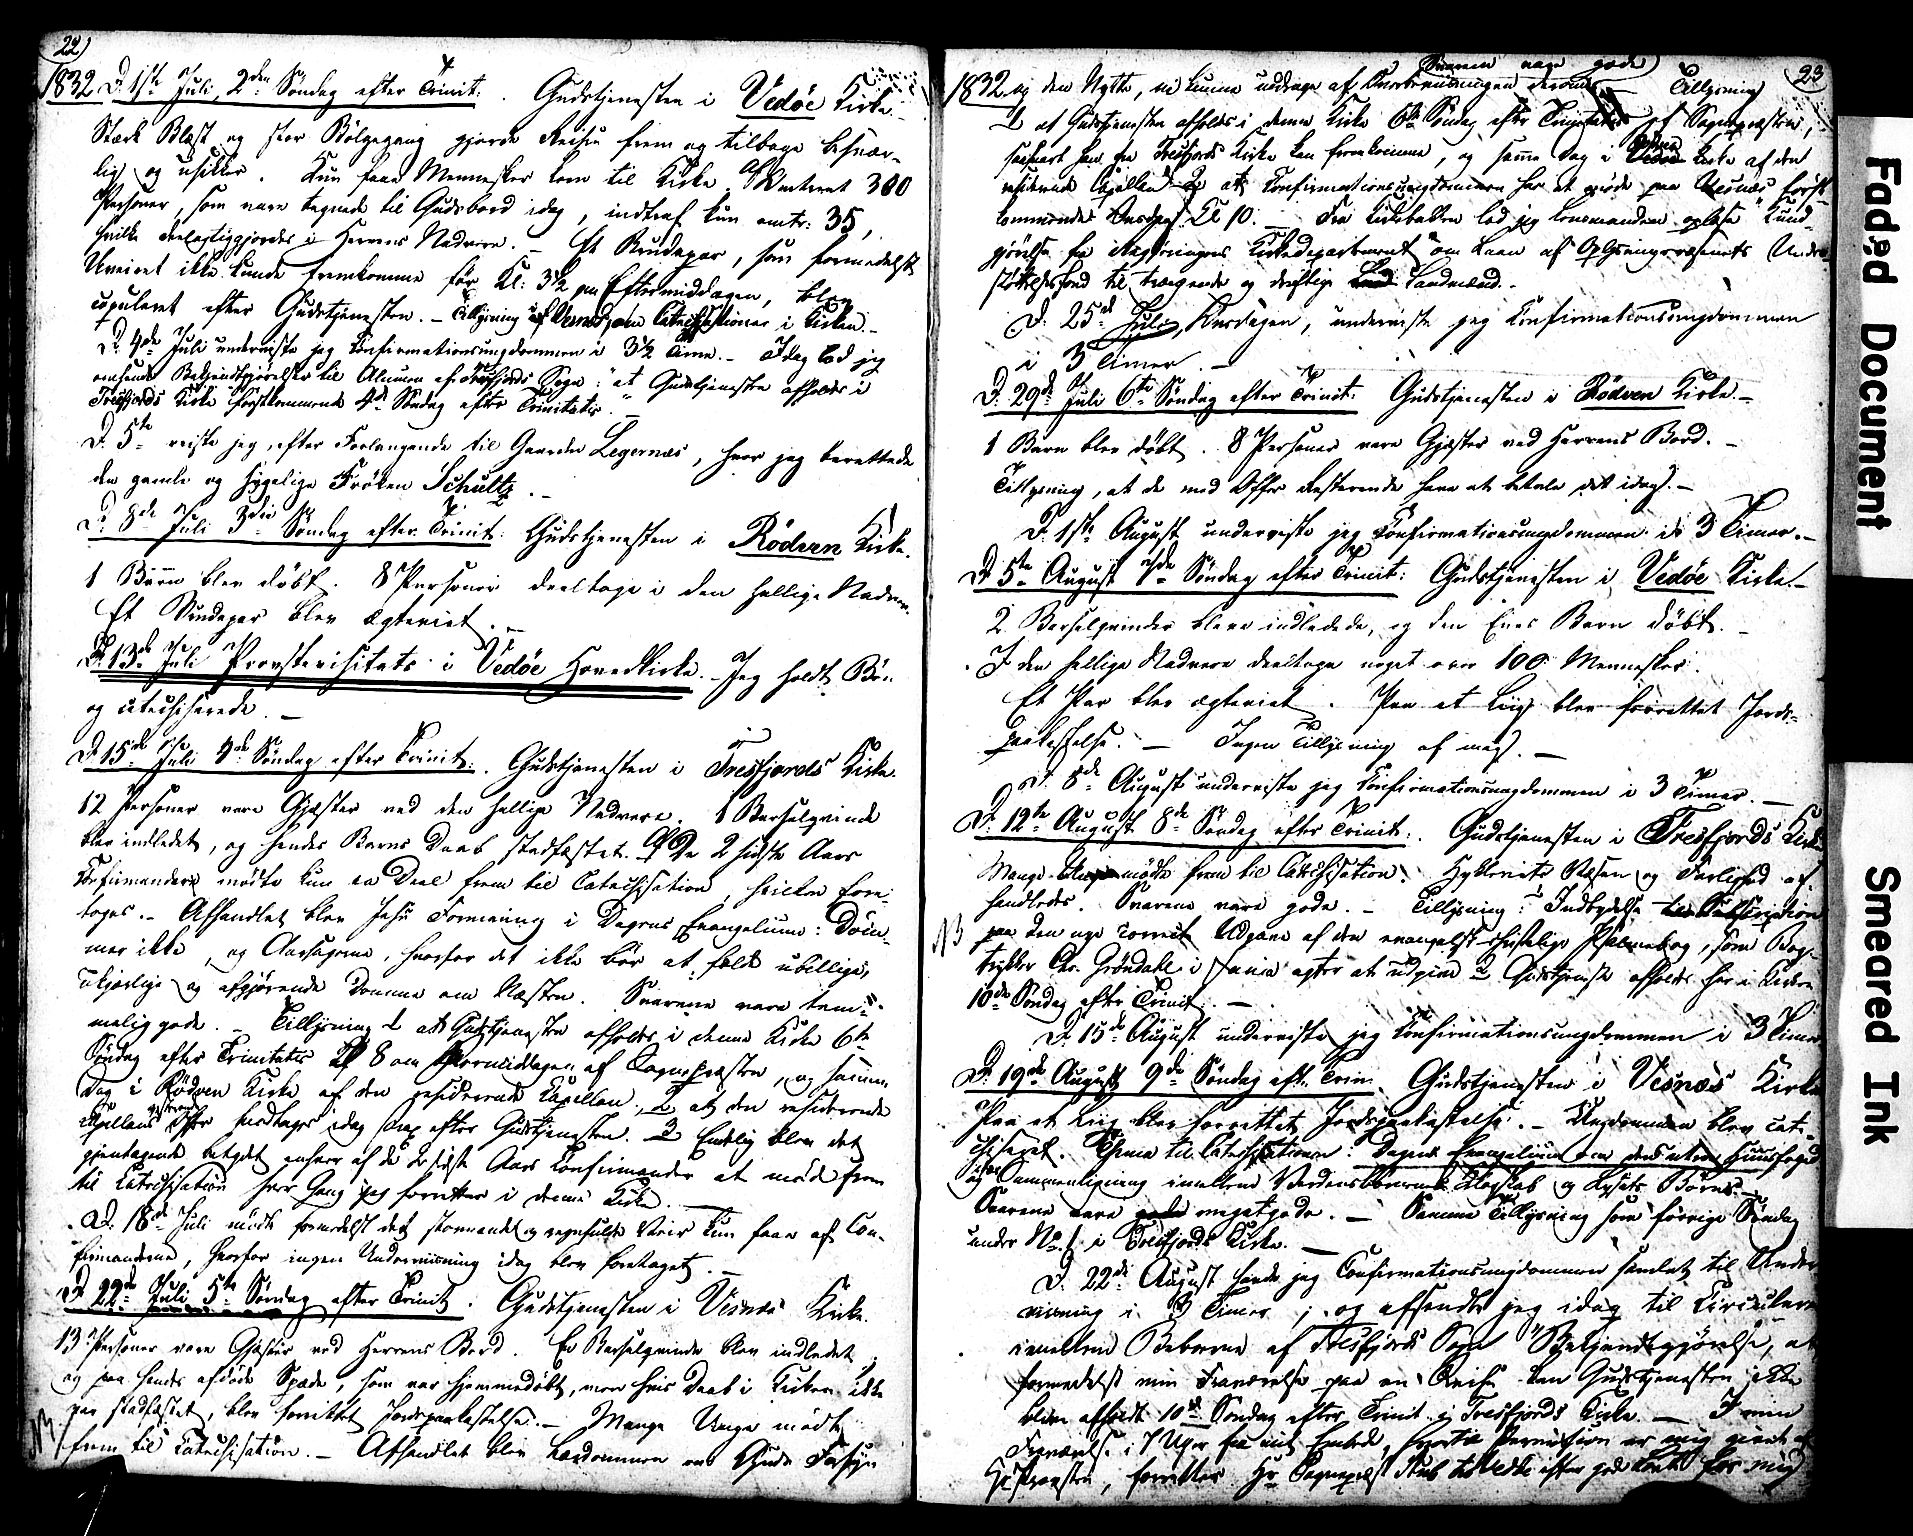 22)
1832 D. 1ste Juli, 2den Søndag efter Trinit: Gudstjenesten i Vedøe Kirke.
Stærk Blæst og stor Bølgegang gjorde Reisen frem og tilbage besvær-
lig og usikker. Kun faae Mennesker kom til Kirke. 300
Personer, som vare tegnede til Gudsbord idag, indtraf kun omtr: 35,
hvilke deelagtiggjordes i Herrens Nadvere. – Et Brudepar, som formedelst
Uveiret ikke kunde fremkomme før Kl: 3½ om Eftermiddagen, blev
copuleret efter Gudstjenesten. – Tillysning om Catechisationer i Kirken. –
D. 4de Juli underviste jeg Confirmationsungdommen i 3½ Time. – Idag lod jeg
omsende Bekjendtgjørelse til Almuen af Tresfjords Sogn: "at Gudstjeneste afholdes i
Tresfjords Kirke førstkommende 4de Søndag efter Trinitatis."
D. 5te reiste jeg, efter Forlangende til Gaarden Legernæs, hvor jeg berettede
den gamle og sygelige Frøken Schultz. –
D. 8de Juli 3die Søndag efter Trinit: Gudstjenesten i Rödven Kirke.
1 Barn blev døbt. 8 Personer deeltoge i den hellige Nadver.
Et Brudepar blev ægteviet. –
D. 13de Juli Provstevisitats i Vedøe Hovedkirke. – Jeg holdt Bøn
og catechiserede. –
D. 15de Juli 4de Søndag efter Trinit: Gudstjenesten i Tresfjords Kirke.
12 Personer vare Gjæster ved den hellige Nadvere. 1 Barselqvinde
blev indledet, og hendes Barns Daab stadfæstet. Af De 2 sidste Aars
Confirmander mødte kun en Deel frem til Catechisation, hvilken fore-
toges. – Afhandlet blev Jesu Formaning i Dagens Evangelium: Döm-
mer ikke, og Aarsagerne, hvorfor det ikke bør at fælde ubillige,
ukjærlige og afgjørende Domme om Næsten. Svarene vare tem-
melig gode. – Tillysning 1 at Gudstjenesten afholdes i denne Kirke 6te
Søndag efter Trinitatis Kl 8 om Formiddagen af Sognepræsten, og samme
Dag i Rödven Kirke af den residerende Capellan. 2 at den residerende
Capellans Offer modtages idag strax efter Gudstjenesten. 3 Endelig blev det
gjentagende betydet enhver af de 2 sidste Aars Confirmander at møde frem
til Catechisation hver Gang jeg forretter i denne Kirke. –
D. 18de Juli mødte formedelst det stormende og regnfulde Veir kun faae af Con-
firmanderne, hvorfor ingen Underviisning idag blev foretaget. –
D. 22de Juli 5te Søndag efter Trinit. Gudstjenesten i Vesnæs Kirke.
13 Personer vare Gjæster ved Herrens Bord. En Barselqvinde blev indledet,
og paa hendes afdøde Spæde, som var hjemmedøbt, men hvis Daab i Kirken ikke
var stadfæstet, blev forrettet Jordspaakastelse. – Mange Unge mødte
NB frem til Catechisation. – Afhandlet blev Lærdommen om Guds Forsyn
23
1832 og den Nytte, vi kunne uddrage af Overbeviisningen derom. Svarene vare gode Tillysning
1 at Gudstjenesten afholdes i denne Kirke 6te Søndag efter Trinitatis af Sognepræsten,
saasnart han fra Tresfjords Kirke kan fremkomme, og samme Dag i Rödven Kirke af den
residerende Capellan 2 at Confirmationsungdommen har at møde paa Vesnæs først-
kommende Onsdag Kl 10. – Fra Kirkebakken lod jeg Lensmanden oplæse "Kund-
gjørelse fra Regjeringens Kirkedepartement" om Laan af Oplysningsvæsenets Under-
støttelsesfond til trængende og driftige Landmænd. –
D. 25de Juli, Onsdagen, underviste jeg Confirmationsungdommen
i 3 Timer. –
D. 29de Juli 6te Søndag efter Trinit: Gudstjenesten i Rödven Kirke. –
1 Barn blev døbt. 8 Personer vare Gjæster ved Herrens Bord. –
Tillysning, at de med Offer Resterende have at betale det idag. –
D. 1ste August underviste jeg Confirmationsungdommen i 3 Timer. –
D. 5te August 7de Søndag efter Trinit: Gudstjenesten i Vedøe Kirke. –
2 Barselqvinder bleve indledede, og den Enes Barn døbt. –
I den hellige Nadvere deeltoge noget over 100 Mennesker.
Et Par blev ægteviet. Paa et Liig blev forrettet Jords-
paakastelse. – Ingen Tillysning af mig. –
D. 8de August underviste jeg Confirmationsungdommen i 3 Timer. –
D. 12te August 8de Søndag efter Trinit: Gudstjenesten i Tresfjords Kirke
Mange Unge mødte frem til Catechisation. Hykleriets Væsen og Farlighed af-
handledes. Svarene vare gode. – Tillysning: 1 Indbydelse til Subscription
NB paa den nye Udgave af den evangelisk-christelige Psalmebog, som Bog-
trykker Chr. Grøndahl i agter at udgive 2 Gudstjeneste afholdes her i Kirken
10de Søndag efter Trinit. –
D. 15de August underviste jeg Confirmationsungdommen i 3 Timer
D. 19de August 9de Søndag eft. Trin. Gudstjenesten i Vesnæs Kirke
Paa et Liig blev forrettet Jordspaakastelse. – Ungdommen blev cate-
chiseret. Thema til Catechisationen: Dagens Evangelium om den utroe Huusfoged
og Sammenligning imellem Verdensbørnenes Klogskab og Lysets Børns. –
Svarene vare meget gode. – Samme Tillysning som forrige Søndag
under No. 1 i Tresfjords Kirke. –
D. 22de August havde jeg Confirmationsungdommen samlet til Under-
viisning i 3 Timer, og afsendte jeg idag til Circulation
imellem Beboerne af Tresfjords Sogn "Bekjendtgjørelse, at
formedelst min Fraværelse paa en Reise kan Gudstjenesten ikke
blive afholdt 10de Søndag efter Trinit. i Tresfjords Kirke. – I min
Fraværelse i 7 Uger fra mit Embed, hvortil Permission er mig givet af
Hr Provsten, forretter Hr Sognepræst Stub efter for mig
Faded Document
Smeared Ink